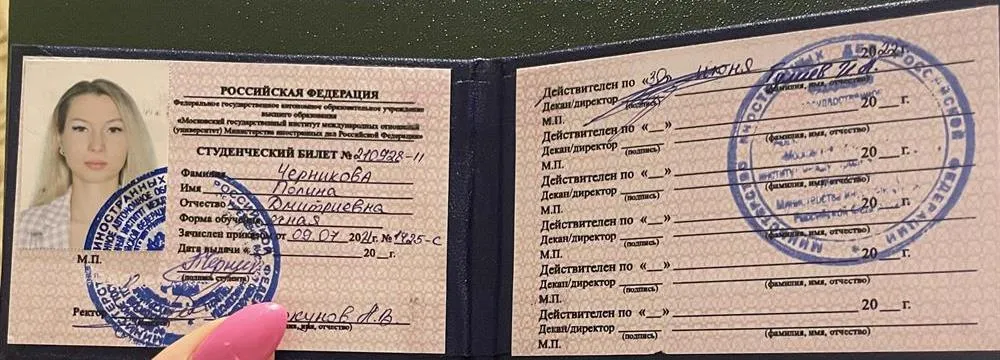 РОССИЙСКАЯ ФЕДЕРАЦИЯ
Федеральное государственное автономное образовательное учреждение
высшего образования
«Московский государственный институт международных отношений
(университет) Министерства иностранных дел Российской Федерации»
СТУДЕНЧЕСКИЙ БИЛЕТ № 210928-11
Фамилия Черникова
Имя Полина
Отчество Дмитриевна
Форма обучения
Зачислен приказом от 09.07 2021г. № 1425-с
Дата выдачи « 20 г.
М.П.
(подпись студента)
Ректор
фамилия, имя, отчество)
Действителен по «30» июня 2022
Декан/директор
(подпись) (фамилия, имя, отчество)
М.П. 20__г.
Действителен по «__»
Декан/директор
(подпись) (фамилия, имя, отчество)
М.П. 20__г.
Действителен по «__»
Декан/директор
(подпись) (фамилия, имя, отчество)
М.П. 20__г.
Действителен по «__»
Декан/директор
(подпись) (фамилия, имя, отчество)
М.П. 20__г.
Действителен по «__»
Декан/директор
(подпись) (фамилия, имя, отчество)
М.П. 20__г.
Действителен по «__»
Декан/директор
(подпись) (фамилия, имя, отчество)
М.П.